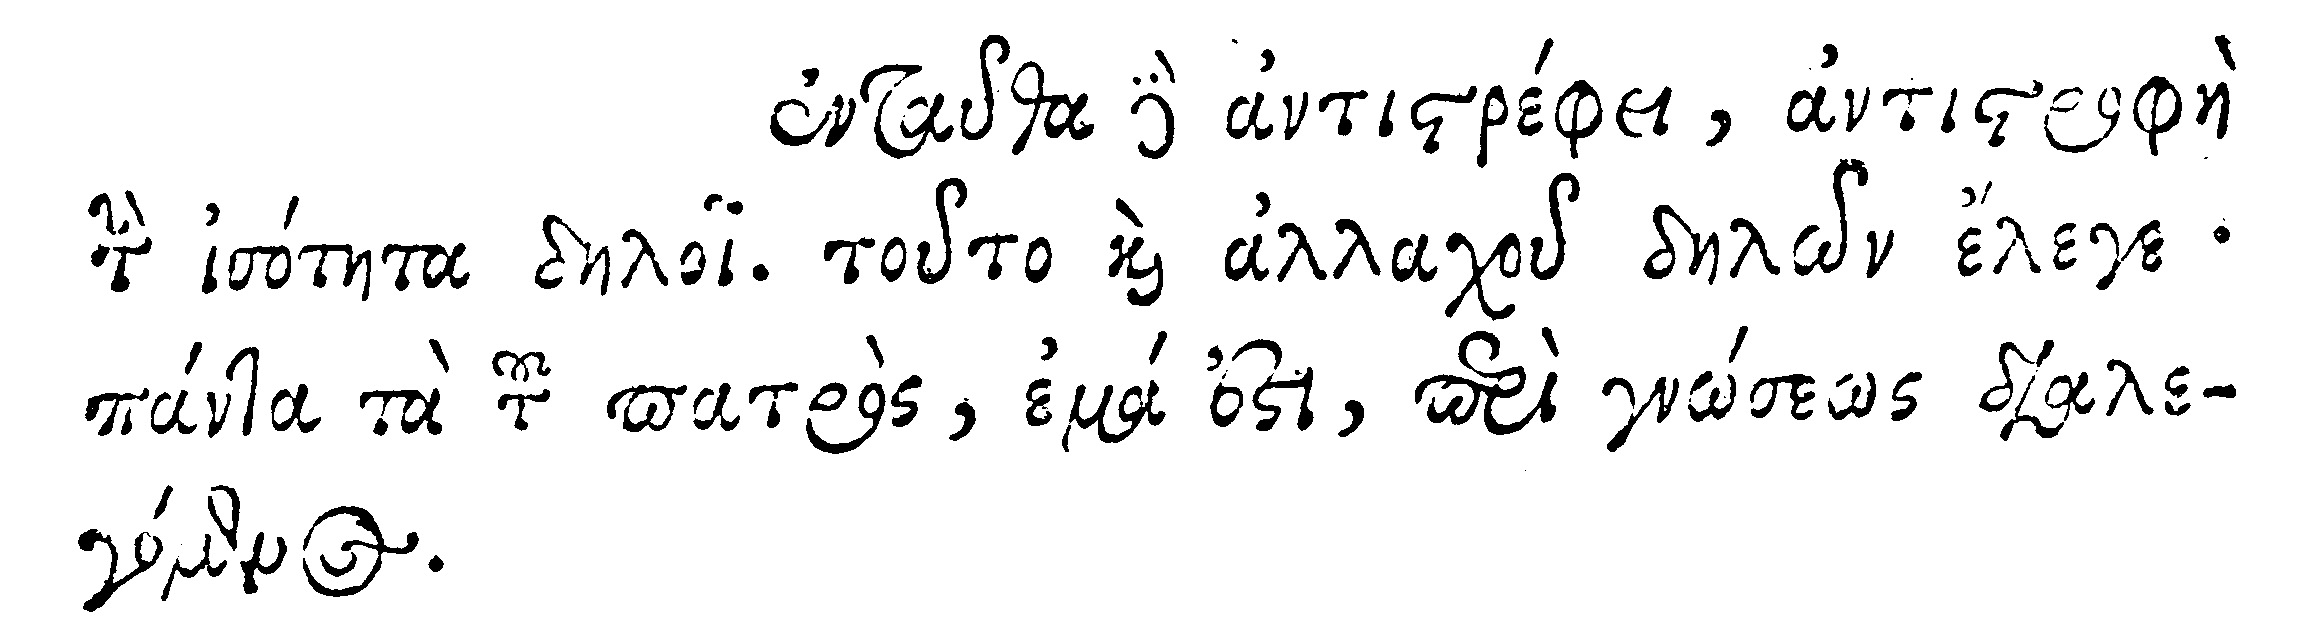 ἐνταῦθα δὲ ἀντιστρέφει, ἀντιστροφὴ
τὴν ἰσότητα δηλοῖ. τοῦτο καὶ ἀλλαχοῦ δηλῶν ἔλεγε·
πάντα τὰ τοῦ πατρὸς, ἐμά ἐστι, περὶ γνώσεως διαλε-
γόμενος.